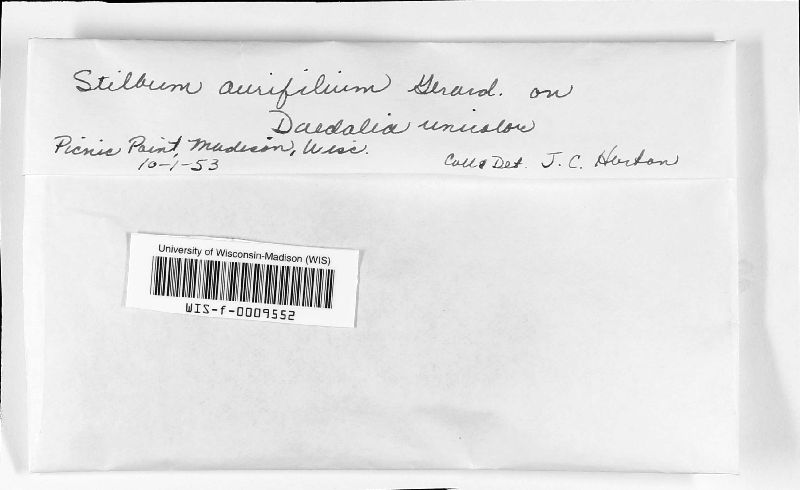 Stilbum aurifilium Gerard. on
Daedalia unicolor
Picnic Point, Madison, Wisc.
10-1-53
Coll & Det. J. C. Horton
University of Wisconsin-Madison (WIS)
WIS-f-0009552